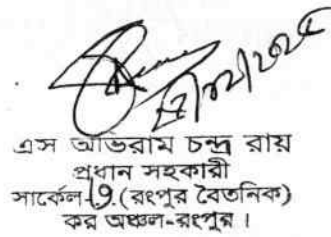 এস অভিরাম চন্দ্র রায়
প্রধান সহকারী
সার্কেল-১৩.(রংপুর বৈতনিক)
কর অঞ্চল-রংপুর।